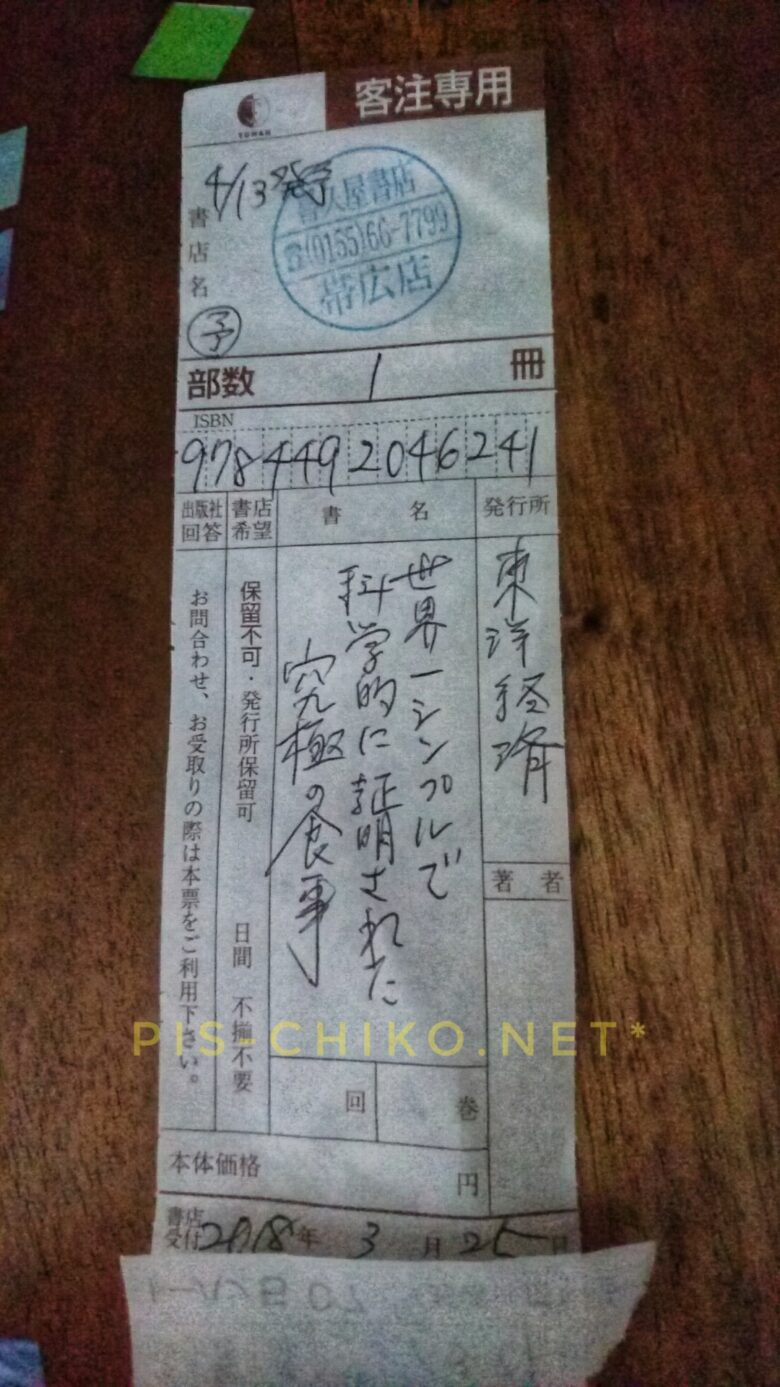 客注専用
TOHAN
4/13発予
書店名
喜久屋書店
☎(0155)66-7799
帯広店
予
部数 1 冊
ISBN
9784492046241
発行所
東洋経済
著者
書名
世界一シンプルで
科学的に証明された
究極の食事
書店希望
保留不可・発行所保留可 日間 不揃不要
出版社回答
お問合わせ、お受取りの際は本票をご利用下さい。
回 巻
本体価格 円
書店受付 2018年 3月 25日
PIS-CHIKO.NET*